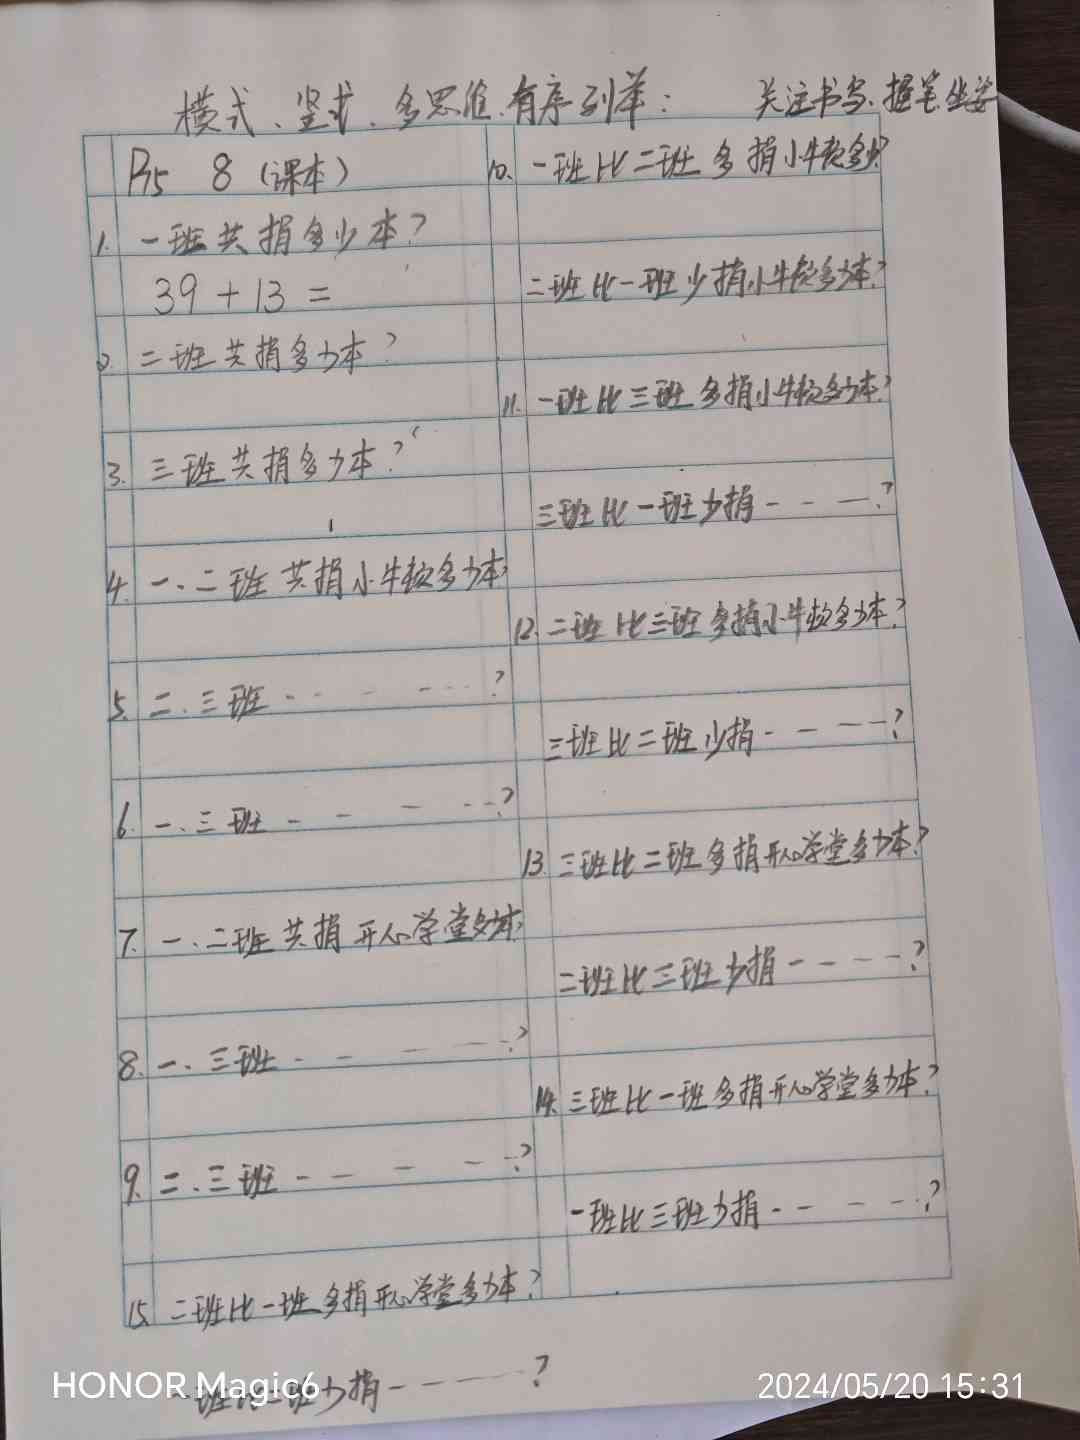 模式、竖式、多思维、有序列举: 关注书写、握笔坐姿
P75 8(课本)
1. 一班共捐多少本?
39+13=
2. 二班共捐多少本?
3. 三班共捐多少本?
4. 一、二班共捐小牛顿多少本?
5. 二、三班 - - - - - - ?
6. 一、三班 - - - - - ?
7. 一、二班共捐开心学堂多少本?
8. 一、三班 - - - - - - ?
9. 二、三班 - - - - - ?
15. 二班比一班多捐开心学堂多少本?
一班比二班少捐 - - - - - ?
10. 一班比二班多捐小牛顿多少?
二班比一班少捐小牛顿多少本?
11. 一班比三班多捐小牛顿多少本?
三班比一班少捐 - - - ?
12. 二班比三班多捐小牛顿多少本?
三班比二班少捐 - - - - ?
13. 三班比二班多捐开心学堂多少本?
二班比三班少捐 - - - - ?
14. 三班比一班多捐开心学堂多少本?
一班比三班少捐 - - - - - ?
HONOR Magic6
2024/05/20 15:31